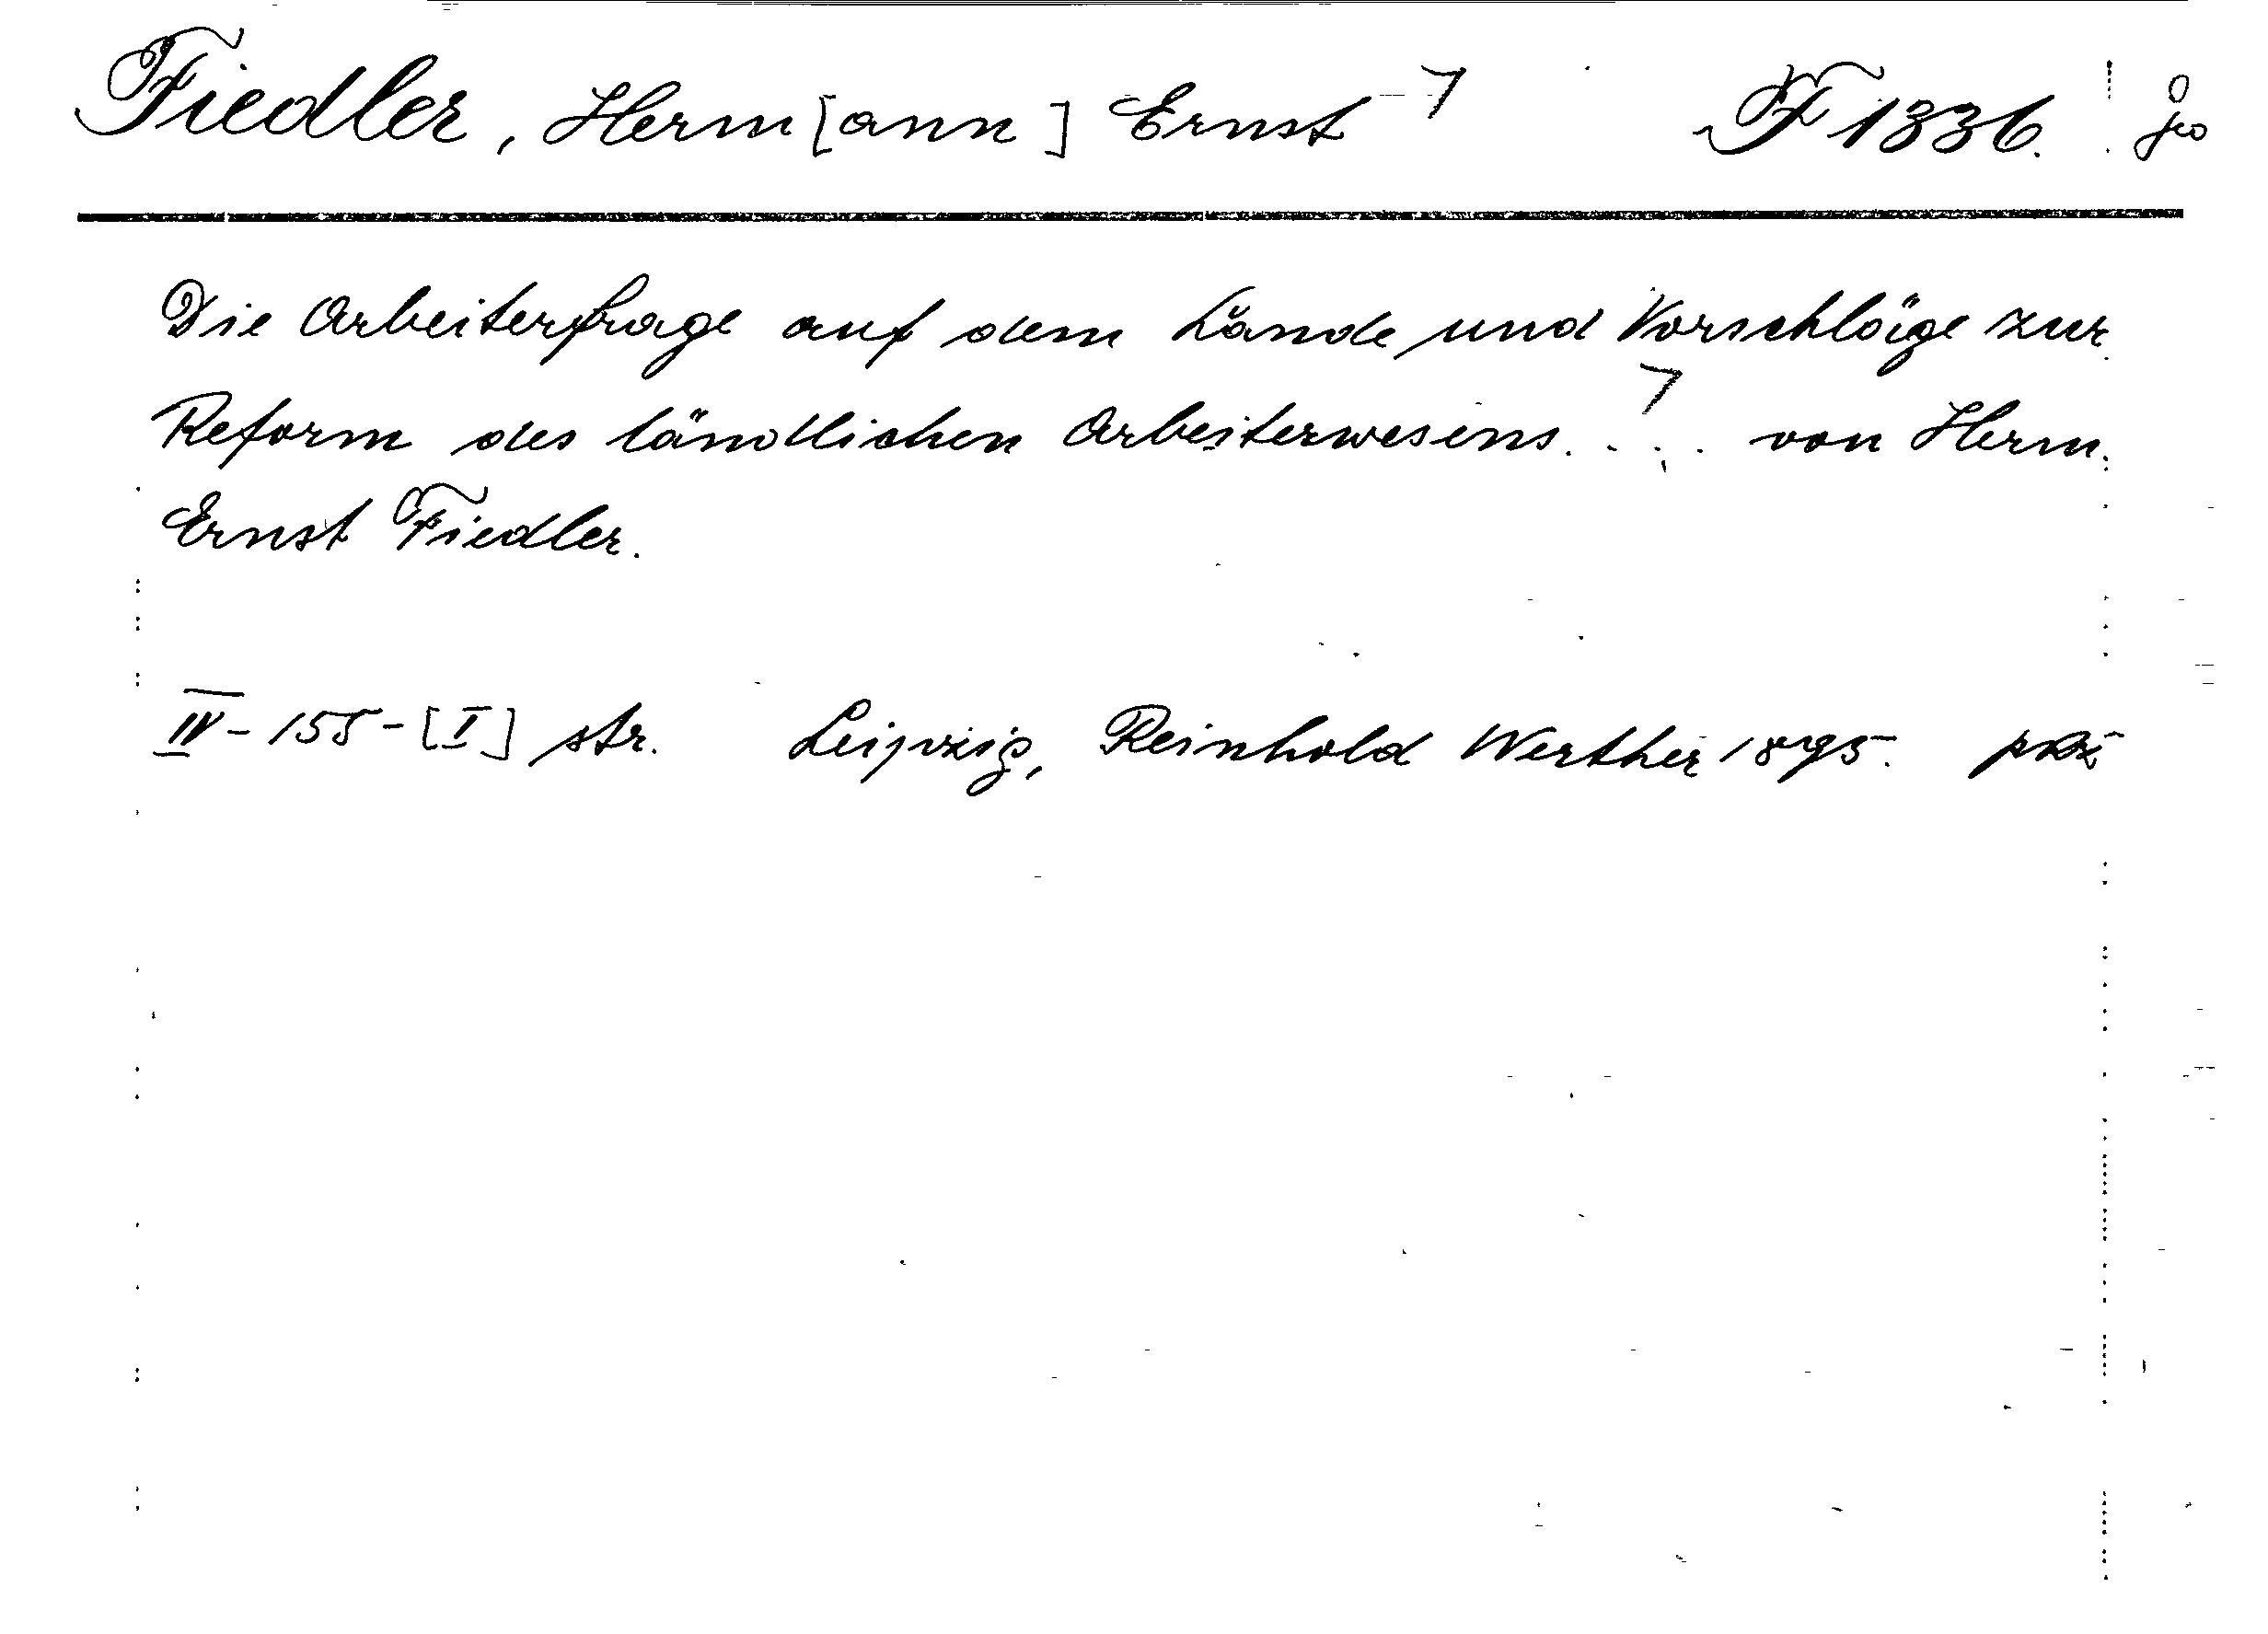 Fiedler, Herm[ann] Ernst F 1336.
Die Arbeiterfrage auf dem Lande und Vorschläge zur
Reform des ländlichen Arbeiterwesens. ... von Herm.
Ernst Fiedler.
IV-155-[I] str. Leipzig, Reinhold Werther 1895.